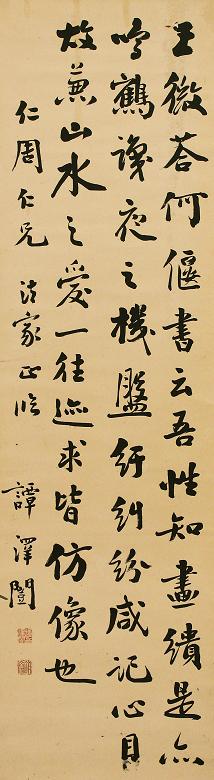 王微荅何偃書云吾性知畫繢是亦
鳴鶴識夜之機盤紆糾紛咸記心目
故兼山水之愛一往迹求皆仿像也
仁周仁兄法家正臨
譚澤闓